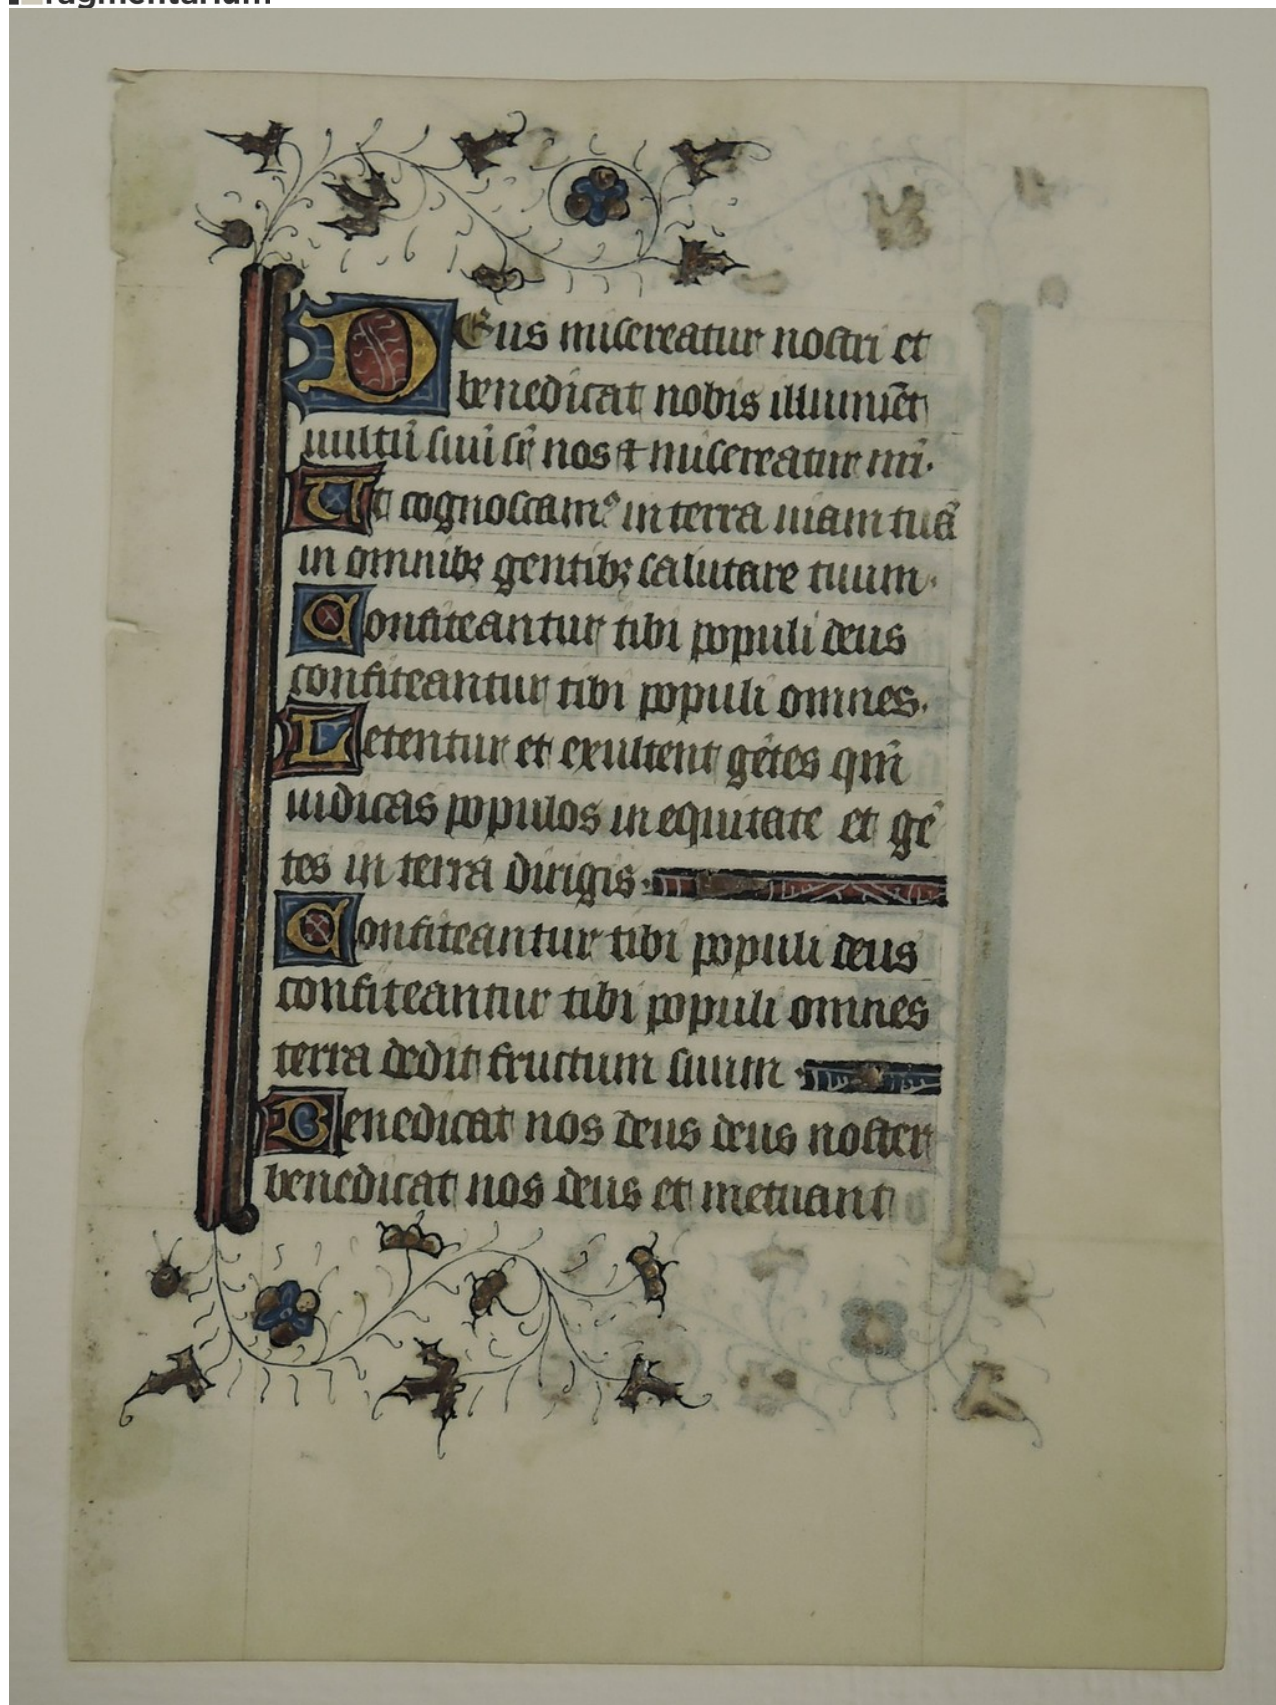 Fragmentarium
DEus misereatur nostri et
benedicat nobis illuminet
uultū suū sr̄ nos et misereatur nrī.
Ut cognoscamꝰ in terra uiam tuā
in omnibꝫ gentibꝫ salutare tuum.
Confiteantur tibi populi deus
confiteantur tibi populi omnes.
Letentur et exultent gētes qm̄
iudicas populos in equitate et gē
tes in terra dirigis.
Confiteantur tibi populi deus
confiteantur tibi populi omnes
terra dedit fructum suum.
Benedicat nos deus deus noster
benedicat nos deus et metuant